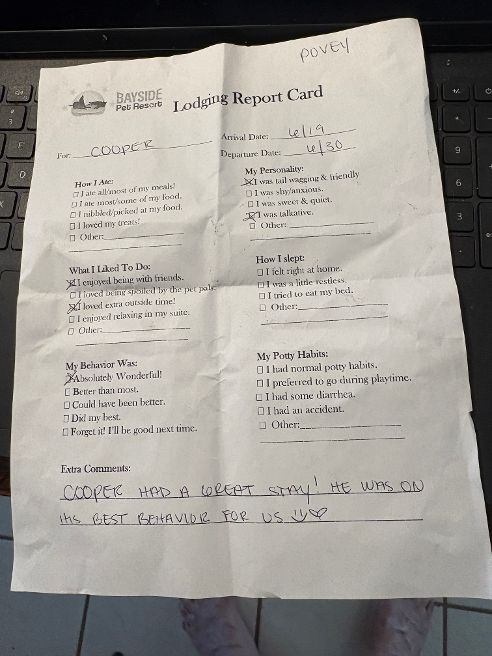 POVEY
BAYSIDE
Pet Resort
Lodging Report Card
For: COOPER
Arrival Date: 6/19
Departure Date: 6/30
How I Ate:
☐ I ate all/most of my meals!
☐ I ate most/some of my food.
☐ I nibbled/picked at my food.
☐ I loved my treats!
☐ Other:
My Personality:
☒ I was tail wagging & friendly
☐ I was shy/anxious.
☐ I was sweet & quiet.
☒ I was talkative.
☐ Other:
What I Liked To Do:
☒ I enjoyed being with friends.
☐ I loved being spoiled by the pet pals.
☒ I loved extra outside time!
☐ I enjoyed relaxing in my suite.
☐ Other:
How I slept:
☐ I felt right at home.
☐ I was a little restless.
☐ I tried to eat my bed.
☐ Other:
My Behavior Was:
☒ Absolutely Wonderful!
☐ Better than most.
☐ Could have been better.
☐ Did my best.
☐ Forget it! I'll be good next time.
My Potty Habits:
☐ I had normal potty habits.
☐ I preferred to go during playtime.
☐ I had some diarrhea.
☐ I had an accident.
☐ Other:
Extra Comments:
COOPER HAD A GREAT STAY! HE WAS ON
HIS BEST BEHAVIOR FOR US ☺♡